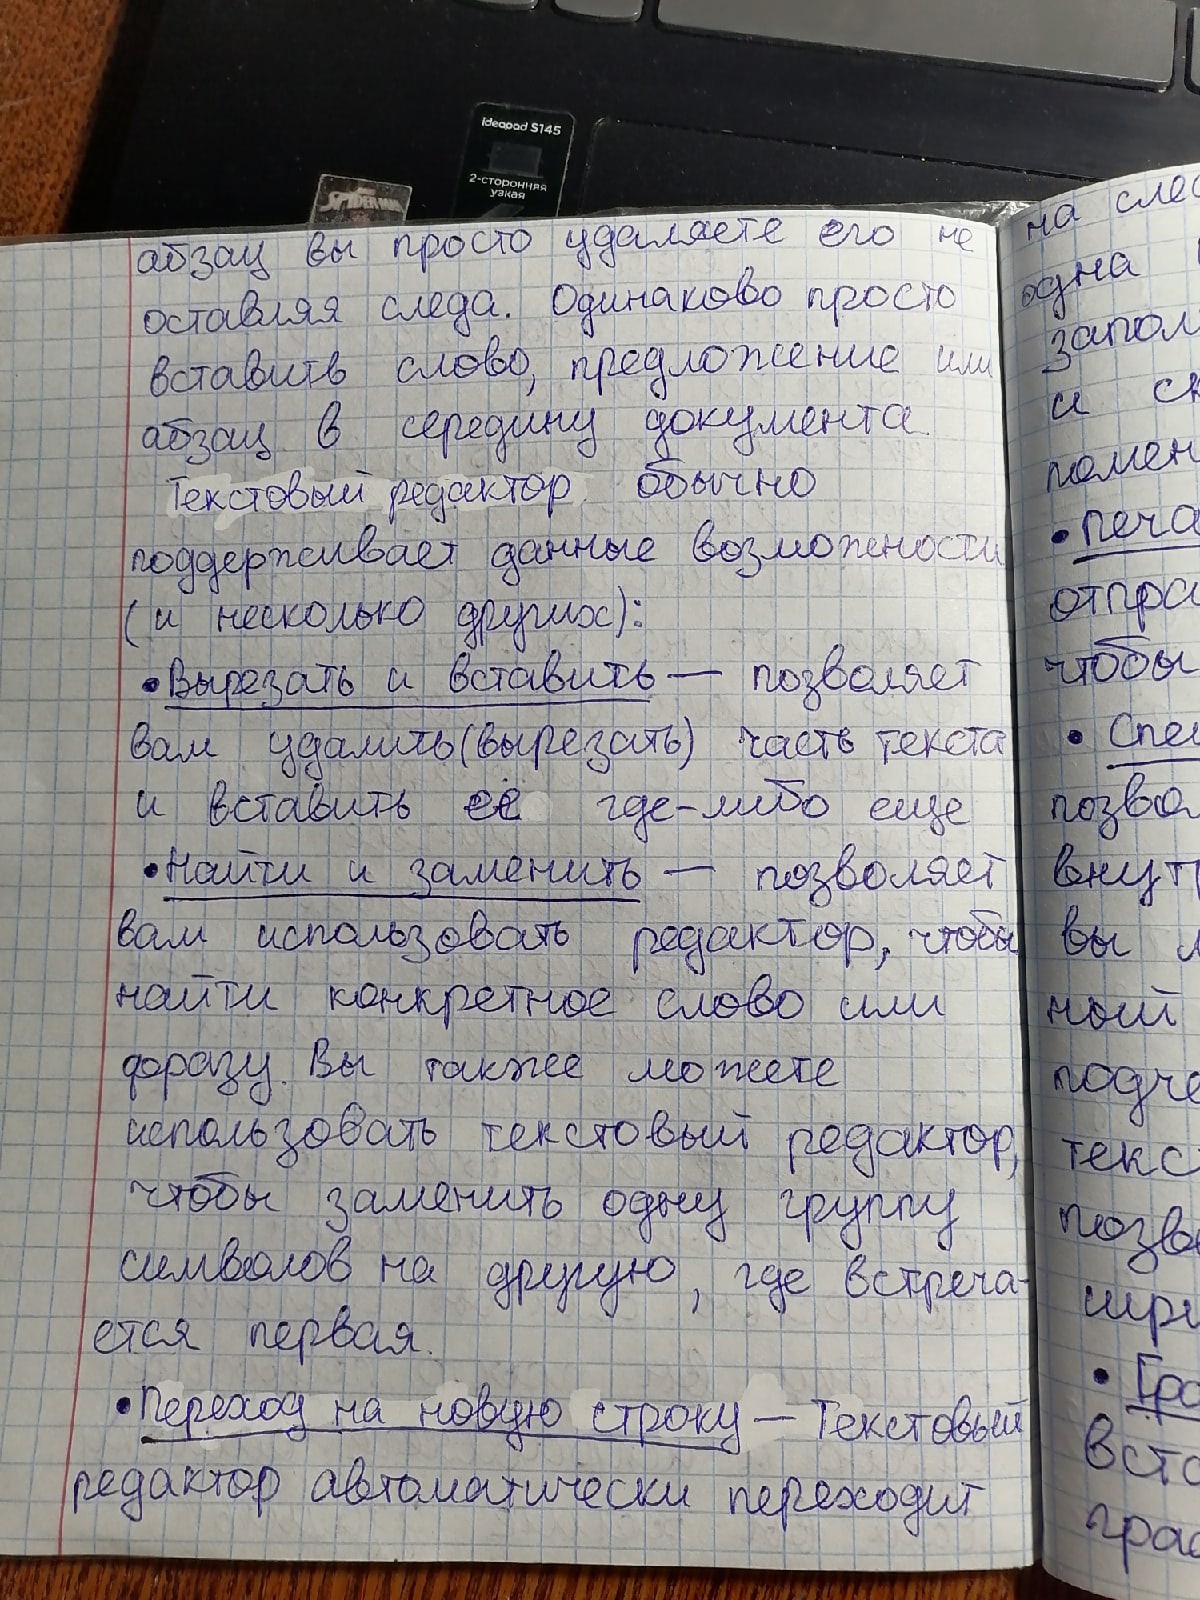 ideapad S145
2-сторонняя
узкая
SPIDER-MAN
абзац вы просто удаляете его не
оставляя следа. Одинаково просто
вставить слово, предложение или
абзац в середину документа.
Текстовый редактор обычно
поддерживает данные возможности
(и несколько других):
•Вырезать и вставить — позволяет
вам удалить(вырезать) часть текста
и вставить её где-либо еще
•Найти и заменить — позволяет
вам использовать редактор, чтобы
найти конкретное слово или
фразу. Вы также можете
использовать текстовый редактор,
чтобы заменить одну группу
символов на другую, где встреча-
ется первая.
•Переход на новую строку — Текстовый
редактор автоматически переходит
на след
одна
запол
и ск
помен
• печа
отпра
чтобы
• Спец
позвол
внутр
вы
ной
подче
текс
позво
шри
• Гра
вста
граф